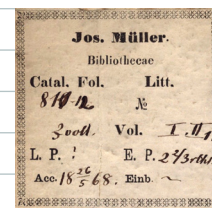 Jos. Müller.
Bibliothecae
Catal. Fol. Litt.
№
Vol. I. II
L. P. E. P. 2 2/3 rthl
Acc. 18 26/5 68. Einb. ~